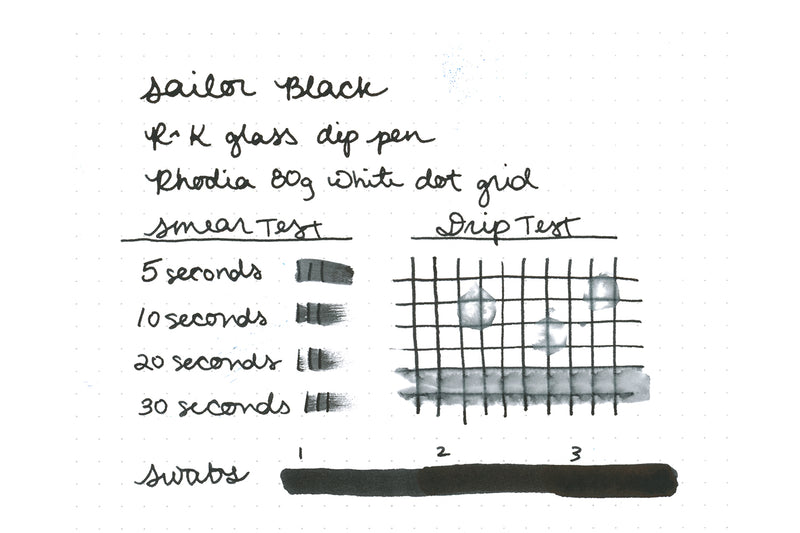 Sailor Black
R-K glass dip pen
Rhodia 80g White dot grid
Smear Test
Drip Test
5 seconds
10 seconds
20 seconds
30 seconds
1 2 3
swabs